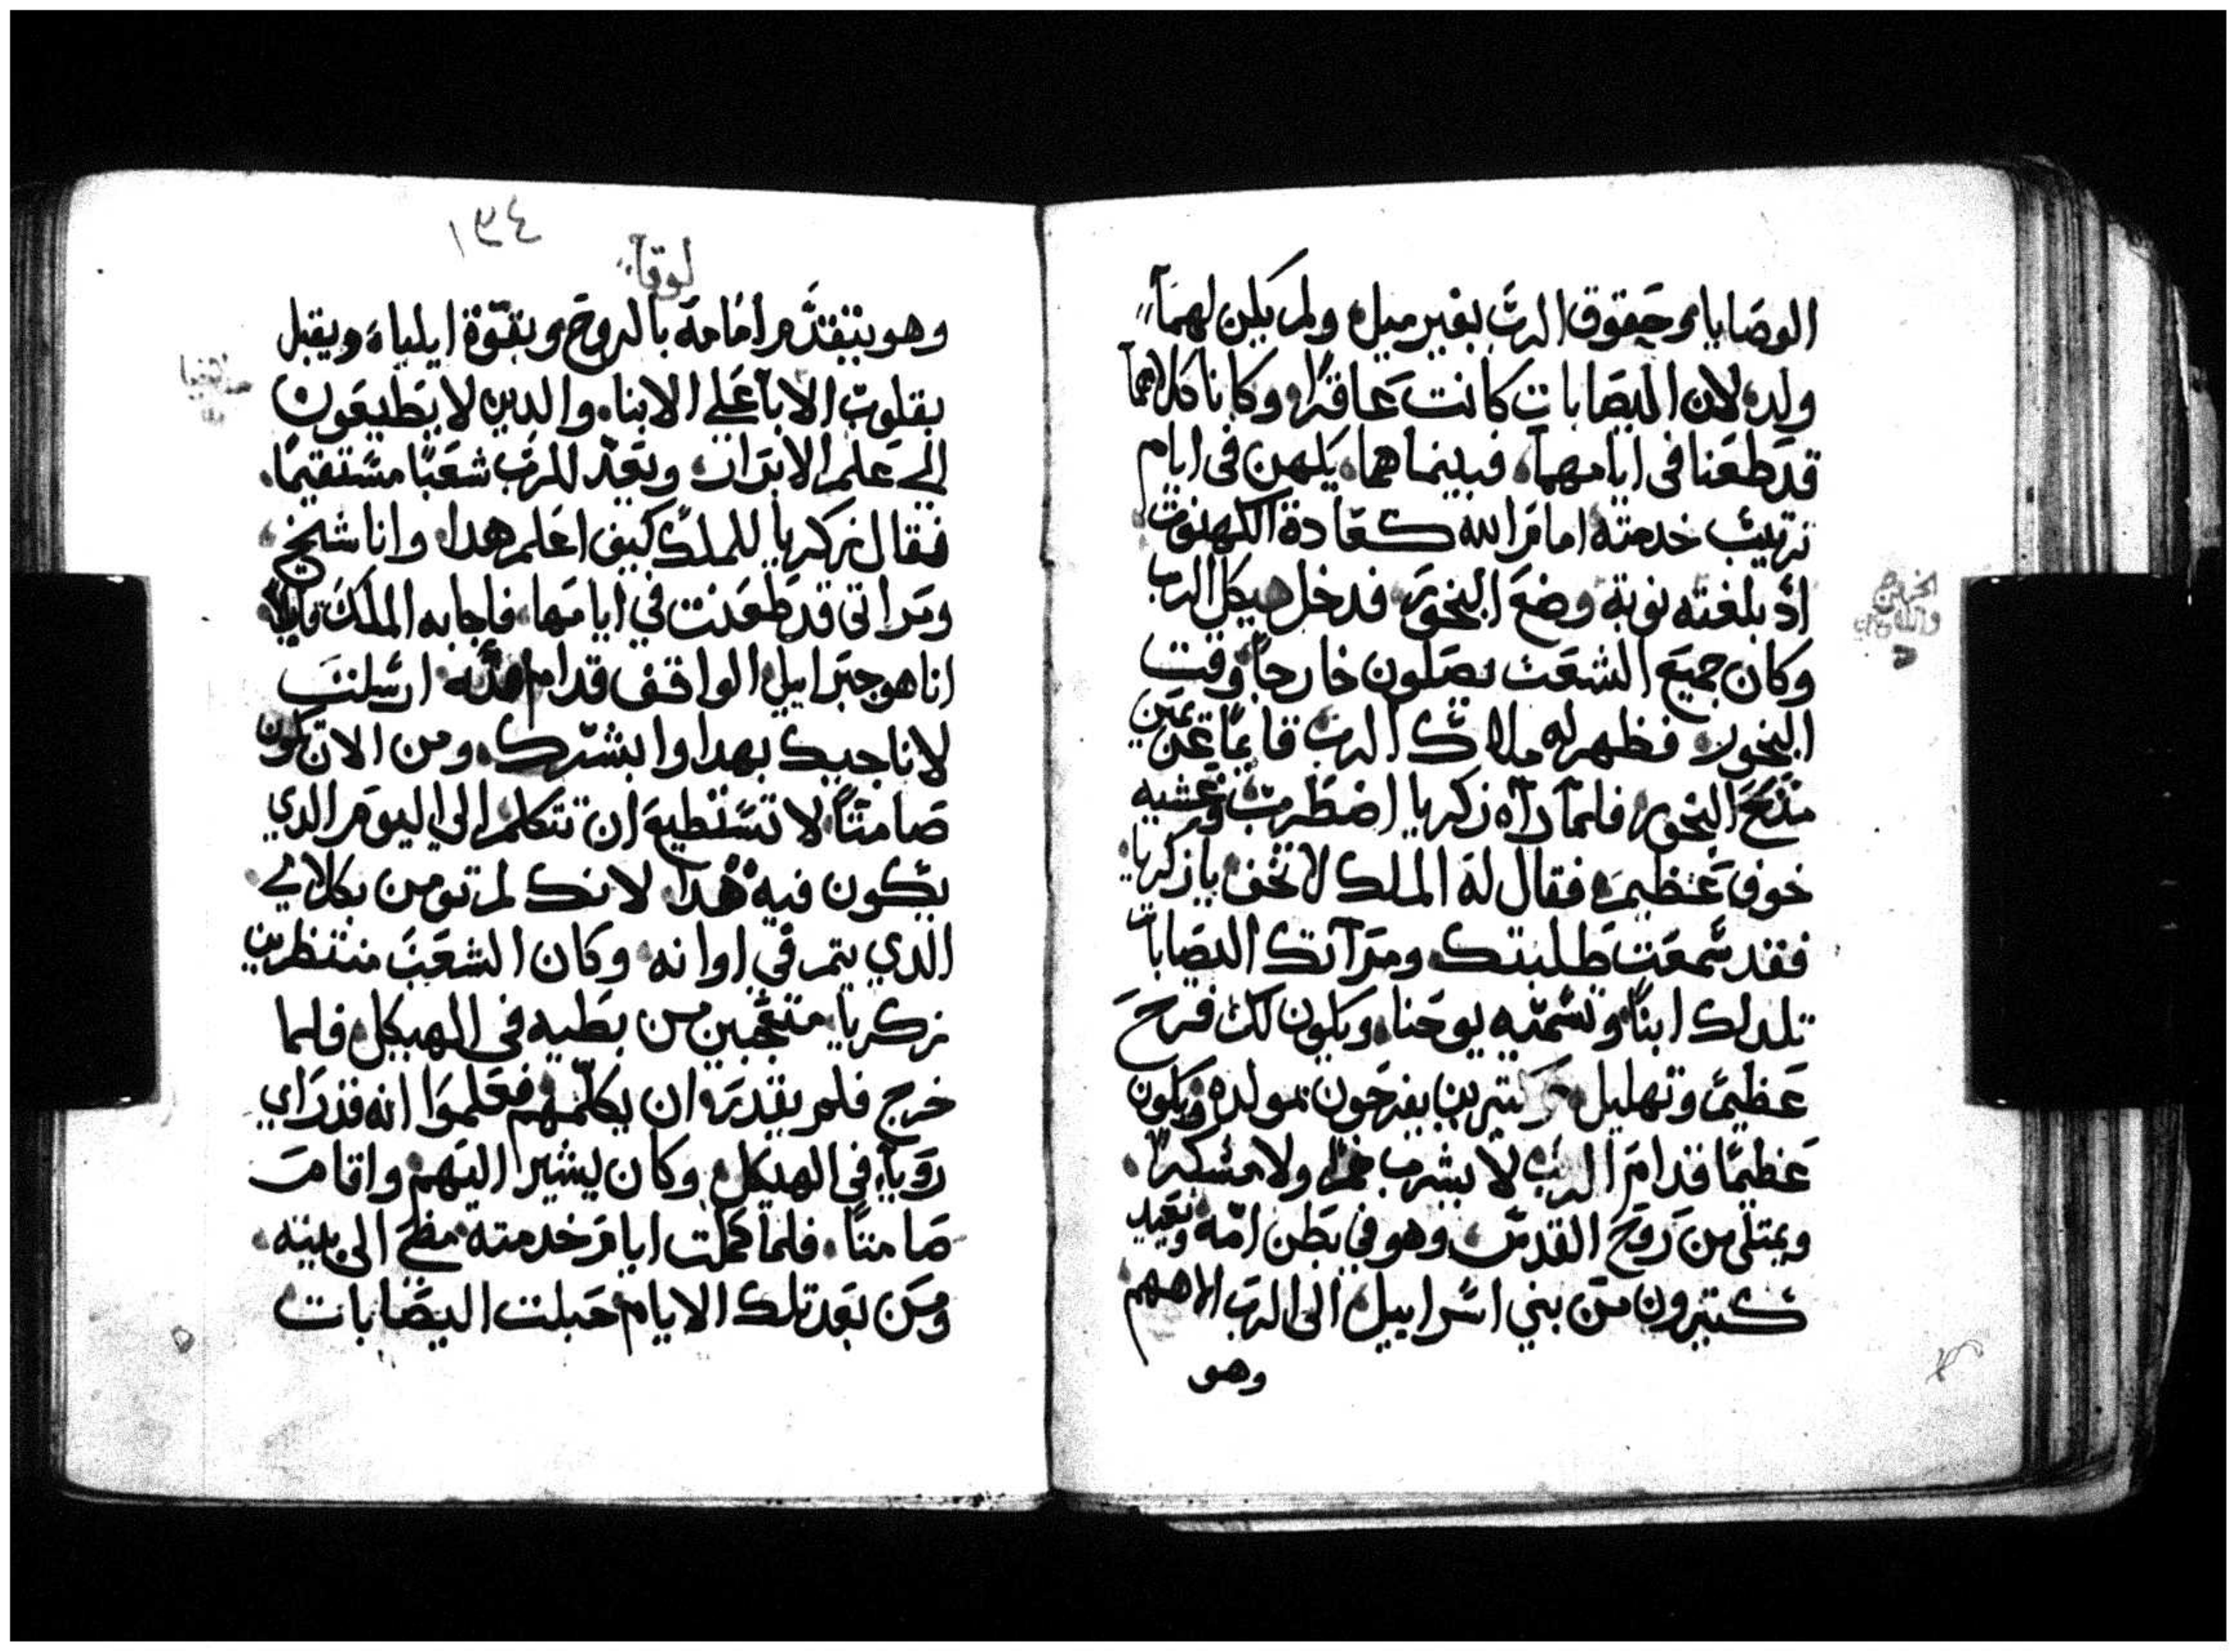 الوصايا وحقوق الرب بغير ميل ولم يكن لهما
ولد لان اليصابات كانت عاقرا وكانا كلاهما
قد طعنا في ايامهما فبينما هما يكهن في ايام
ترتيب خدمته امام الله كعادة الكهنوت
اد بلغته نوبة وضع البخور فدخل هيكل الرب
وكان جميع الشعب يصلون خارجا وقت
البخور فظهر له ملاك الرب قايما عن يمين
مذبح البخور فلما رآه زكريا اضطرب وغشيه
خوف عظيم فقال له الملك لا تخف يا زكريا
فقد سمعت طلبتك ومرآتك اليصابات
تلد لك ابنا وتسميه يوحنا ويكون لك فرح
عظيم وتهليل كتيرين يفرحون بمولده ويكون
عظيما قدام الرب لا يشرب خمرا ولا مسكرا
ويمتلي من روح القدس وهو في بطن امه ويعيد
كتيرون من بني اسراييل الى الرب الاههم
وهو
١٣٤
لوقا
وهو يتقدم امامه بالروح وبقوة ايلياء ويقبل
بقلوب الابا على الابناء والدين لا يطيعون
الي علم الابرار ويعد للرب شعبا مستقيما
فقال زكريا للملك كيف اعلم هدا وانا شيخ
ومراتي قد طعنت في ايامها فاجابه الملك قايلا
انا هو جبراييل الواقف قدام الله ارسلت
لاناجيك بهدا وابشرك ومن الان تكون
صامتا لا تستطيع ان تتكلم الى اليوم الدي
يكون فيه هدا لانك لم تومن بكلامي
الدي يتم في اوانه وكان الشعب منتظرين
زكريا متعجبين من بطيه في الهيكل فلما
خرج فلم يقدر ان يكلمهم فعلموا انه قد راي
رويا في الهيكل وكان يشير اليهم واقام
صامتا فلما كملت ايام خدمته مظى الى بيته
ومن بعد تلك الايام حبلت اليصابات